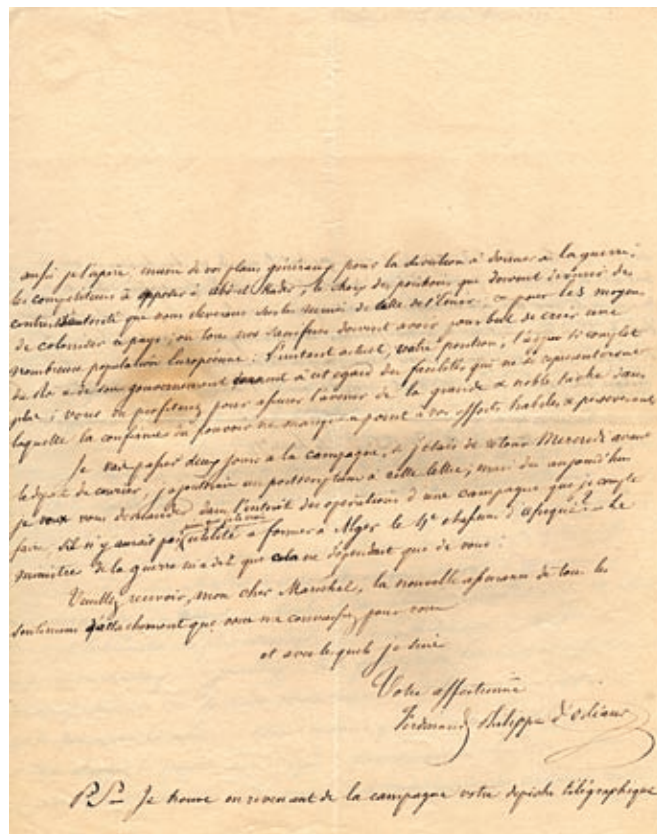 aussi j'espère, même de vos plans généraux pour la direction à donner à la guerre,
les compétiteurs à opposer à Abd el Kader, le choix des positions que doivent dériver des
que nous devons dans les de celle de l'Emir, & pour les moyens
de coloniser le pays, où tous nos sacrifices doivent avoir pour but de créer une
nombreuse population Européenne. L'instant actuel, votre position, l'appui si complet
du Roi & de son gouvernement à cet égard des facilités qui ne se représenteront
plus ; vous en profiterez pour assurer l'avenir de la grande & noble tâche dans
laquelle, la confiance du pouvoir ne manquera point à vos efforts habiles & persévérants
Je vais passer deux jours à la campagne, si j'étais de retour Mercredi avant
le départ du courrier, j'ajouterais un postscriptum à cette lettre, mais dès aujourd'hui
je veux vous demander dans l'intérêt des opérations d'une campagne que je compte
faire, s'il n'y aurait pas utilité à former à Alger le 4e chasseurs d'afrique? Le
ministre de la guerre m'a dit que cela ne dépendait que de vous.
Veuillez recevoir, mon cher Maréchal, la nouvelle assurance de tous les
sentimens d'attachement que vous me connaissez pour vous
et avec lesquels je suis
Votre affectionné
Ferdinand Philippe d'Orléans
P.S. Je trouve en revenant de la campagne votre dépêche télégraphique